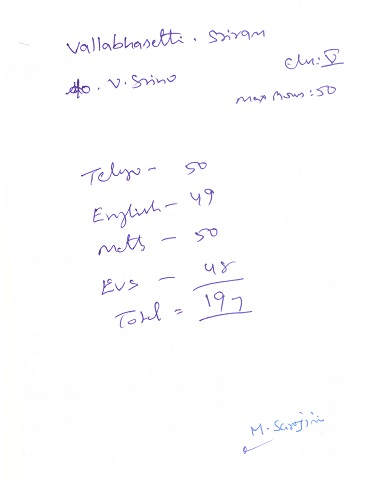 Vallabhasetti. Sriram
Clas: V
S/o. V. Srino
Max Marks: 50
Telgu - 50
English - 49
Maths - 50
EVS - 48
Total = 197
M. Sarojini